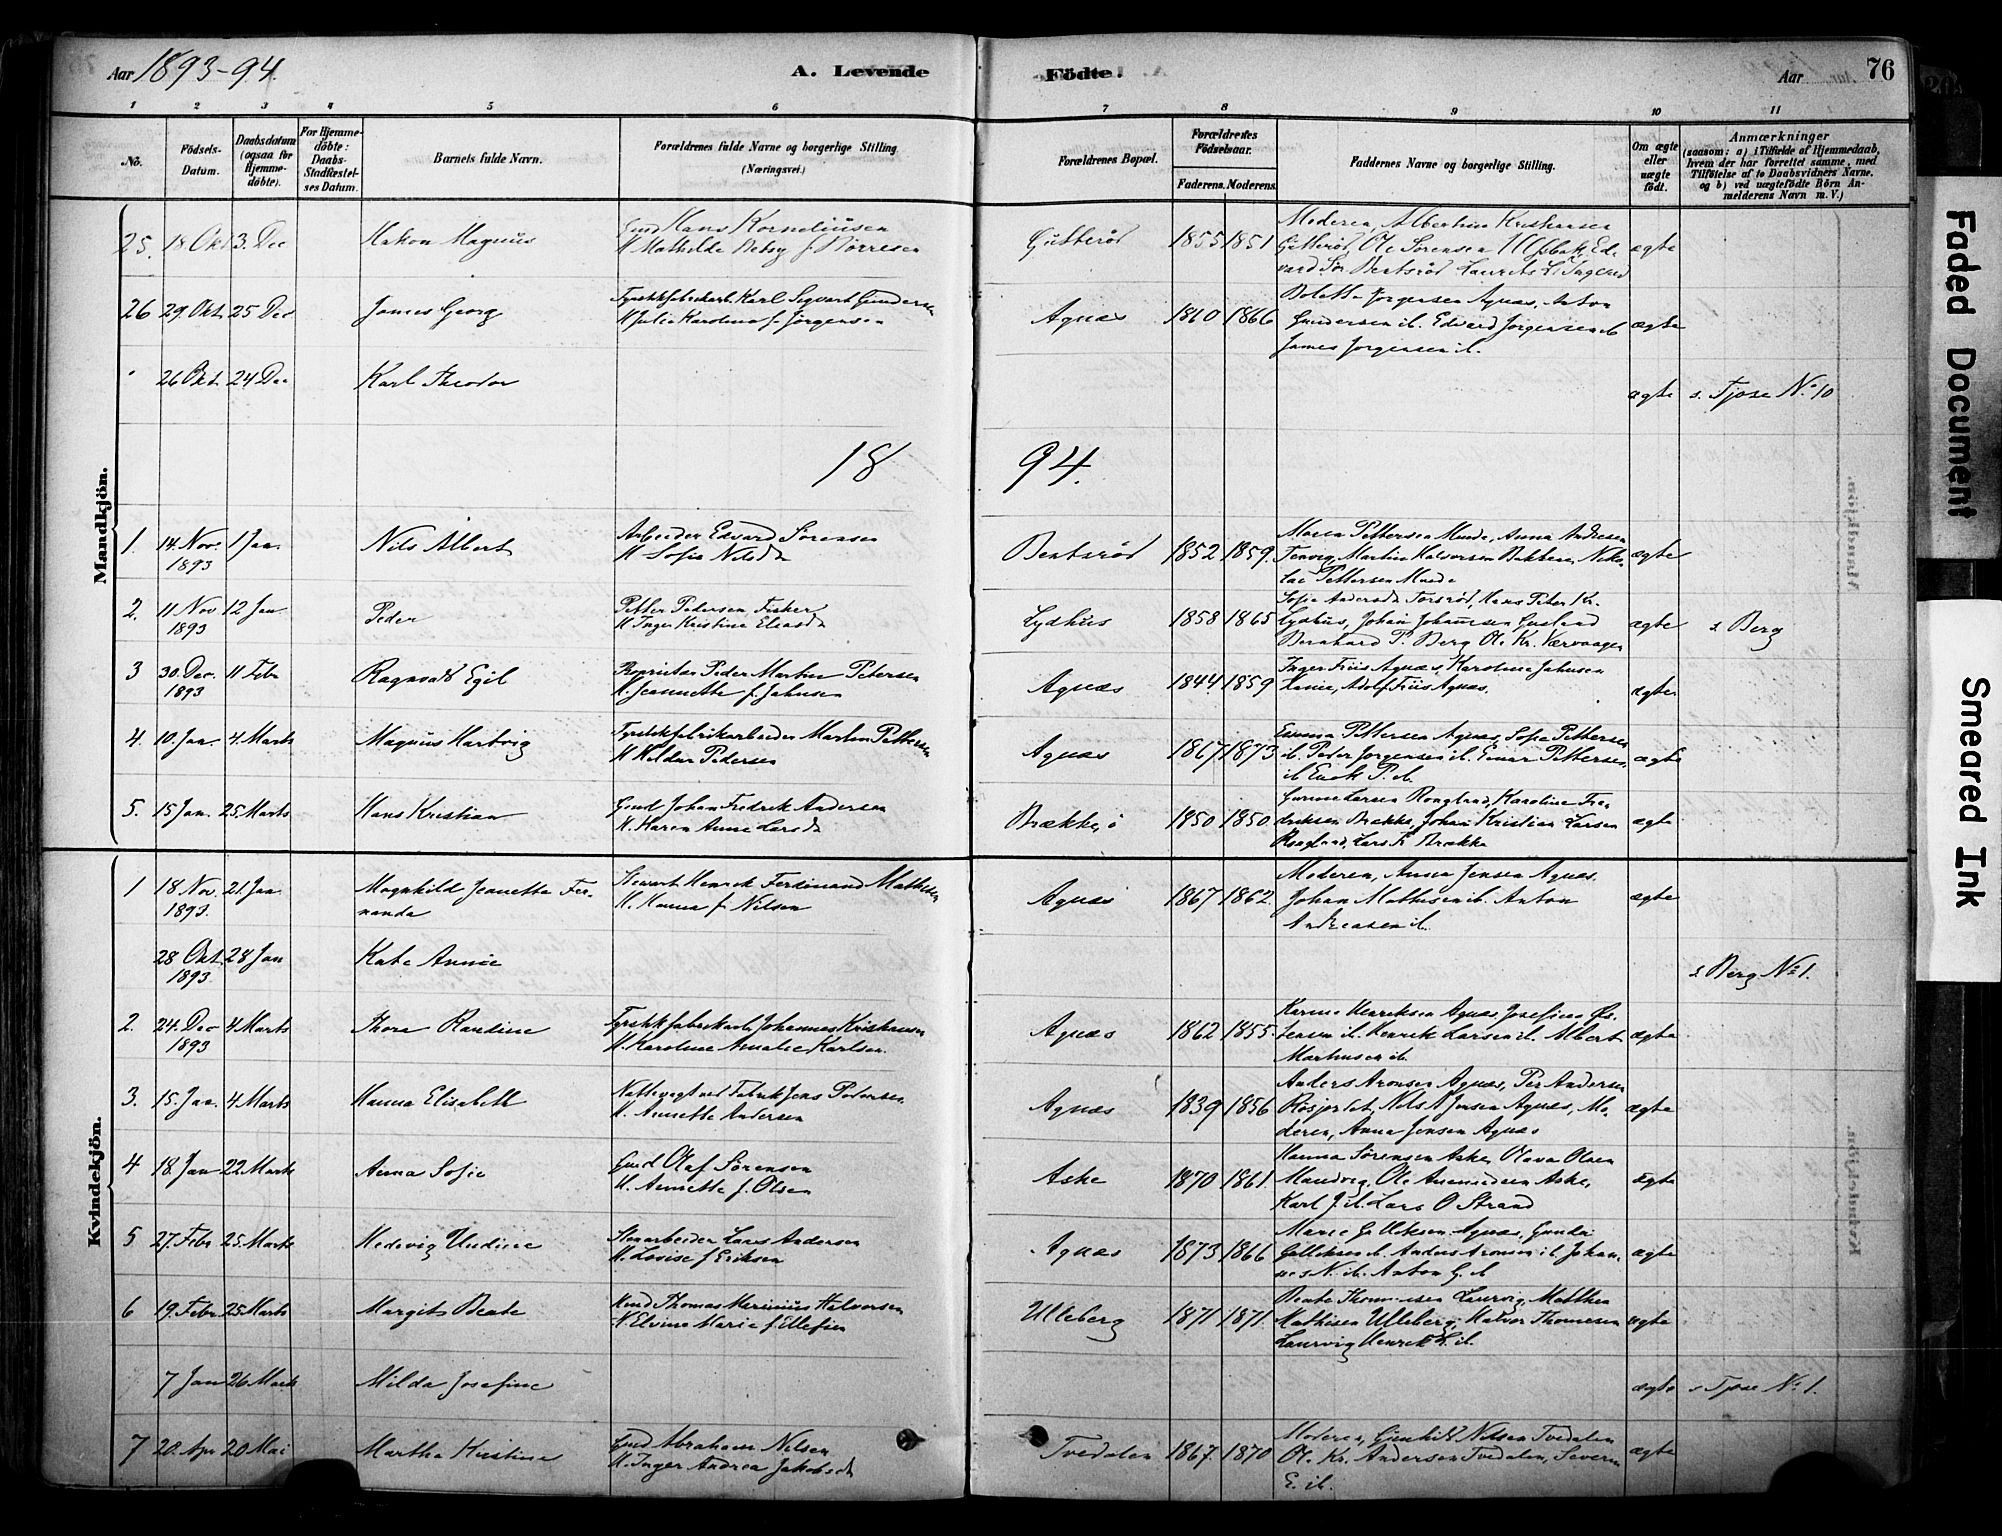 Aar 1893-94.
A. Levende
Födte.
Aar
76
1 2 3 4 5 6 7 8 9 10 11
No.
Födsels-
Datum.
Daabsdatum
(ogsaa for
Hjemme-
döbte).
For Hjemme-
döbte:
Daabs-
Stadfæstel-
ses Datum.
Barnets fulde Navn.
Forældrenes fulde Navne og borgerlige Stilling.
(Næringsvei.)
Forældrenes Bopæl.
Forældrenes
Födselsaar.
Faderens. Moderens.
Faddernes Navne og borgerlige Stilling.
Om ægte
eller
uægte
födt.
Anmærkninger
(saasom: a) i Tilfælde af Hjemmedaab,
hvem der har forrettet samme, med
Tilföielse af to Daabsvidners Navne,
og b) ved uægtefödte Börn An-
melderens Navn m. V.)
Mandkjön.
25. 18 Okt 3. Dec Hakon Magnus
Gmd Hans Korneliusen
H Mathilde Betsy f. Børresen
Gutterød 1855 1851
Moderen, Albertine Kristensen
Gutterød Ole Sørensen
Bentsrød Laurits
ægte
26 29. Okt. 25 Dec James Georg
Fyrstikfabrikarb. Karl Sigvart Gundersen
H Julie Karoline f. Jørgensen
Agnæs 1860 1866
Bolette Jørgensen Agnæs, Anton
Gundersen ib. Edvard Jorgensen ib
James Jorgensen ib.
ægte
26 Okt. 24 Dec Karl Theodor
ægte s. Tjose No. 10
18 94.
1. 14. Nov. 1 Jan. Nils Albert
1893
Arbeider Edvard Sørensen
H Sofie Nilsd
Bentsrød 1852 1859.
Maren Pettersen Munde, Anna Andresen
Tenvig, Martin Halvorsen Bakkene, Niko-
lai Pettersen Munde
ægte
2. 11 Nov 12 Jan Peder
1893
Petter Pedersen Fisker
H. Inger Kristine Eliasd
Lydhus 1858 1865
Sofie Andersd Torsrød, Hans Peter Kr.
Lydhus, Johan Johannsen
Bernhard P. Berg Ole Kr. Værvaagen
ægte s Berg
3 30. Dec. 11 Febr Ragnvald Egil
1893
Proprietær Peder Martin Petersen
H. Jeannette f. Jahnsen
Agnæs 1844 1859
Inger Friis Agnæs, Karoline Jahnsen
Adolf Friis Agnæs.
ægte
4. 10. Jan. 4. Marts Magnus Hartvig
Fyrstikfabrikarbeider Martin Pettersen
H Hilda Pedersen
Agnæs 1867 1873
Emma Pettersen Agnæs, Sofie Pettersen
ib. Peder Jorgensen ib. Einar Pettersen
ib Enok P. ib.
ægte
5. 15 Jan. 25. Marts Hans Kristian
Gmd Johan Fredrik Andersen
H. Karen Anne Larsd
Brække, ø 1850 1850
Gunine Larsen Rongland, Karoline Fre-
driksen Brække, Johan Kristian Larsen
Rongland, Lars Fr Brække
ægte
Kvindekjön.
1 18 Nov. 21. Jan. Magnhild Jeanette Fer-
1893. nanda
Stevart Henrik Ferdinand Mathisen
H. Hanna f. Nilsen
Agnæs 1867 1862.
Moderen, Anna Jensen Agnæs.
Johan Mathisen ib. Anton
Andreasen ib.
ægte
28 Okt. 28 Jan Kate Annie
1893.
s Berg No 1.
2. 24. Dec 4 Marts Thora Randine
1893
Fyrstikfabrikarb. Johannes Kristiansen
H. Karoline Amalie Karlsen
Agnæs 1862 1855.
Karine Henriksen Agnæs, Josefine
ib. Henrik Larsen ib. Albert
Marthinsen ib.
ægte
3. 15. Jan. 4 Marts Hanna Elisabeth
Nattevagt ved Fabrik Jens Pedersen
H. Annette Andersen
Agnæs 1839 1856
Anders Aronsen Agnæs, Per Andersen
Røsjordet, Nils N Jensen Agnæs, Mo-
deren, Anna Jensen Agnæs
ægte
4 18. Jan 22 Marts Anna Sofie
Gmd Olaf Sørensen
H. Annette f. Olsen
Aske 1870 1861.
Hanna Sørensen Aske, Olava Olsen
Mandvig, Ole Aske,
Karl J. ib. Lars O Strand
ægte
5 27. Febr 25. Marts Hedevig Undine
Stenarbeider Lars Andersen
H. Lovise f. Eriksen
Agnæs 1873 1866
Marie Gulliksen Agnæs, Gunda
Gulliksen ib. Anders Aronsen ib. Johan-
nes N. ib. Anton G. ib
ægte
6 19. Febr 25 Marts Margit Beate
Gmd Thomas Marinius Halvorsen
H. Elvine Marie f. Ellefsen
Ulleberg 1871 1871.
Beate Thommesen Laurvig, Matthea
Mathisen Ulleberg, Halvor Thomesen
Laurvig Henrik H. ib.
ægte
7 Jan 26 Marts Milda Josefine
ægte s Tjose No. 1.
7 20. Apr 20 Mai Martha Kristine
Gmd Abraham Nilsen
H. Inger Andrea Jakobsd
Tvedalen 1867. 1870
Moderen, Gunhild Nilsen Tvedalen
Ol. Kr. Andersen Tvedalen, Severin
E. ib.
ægte
Faded Document
Smeared Ink